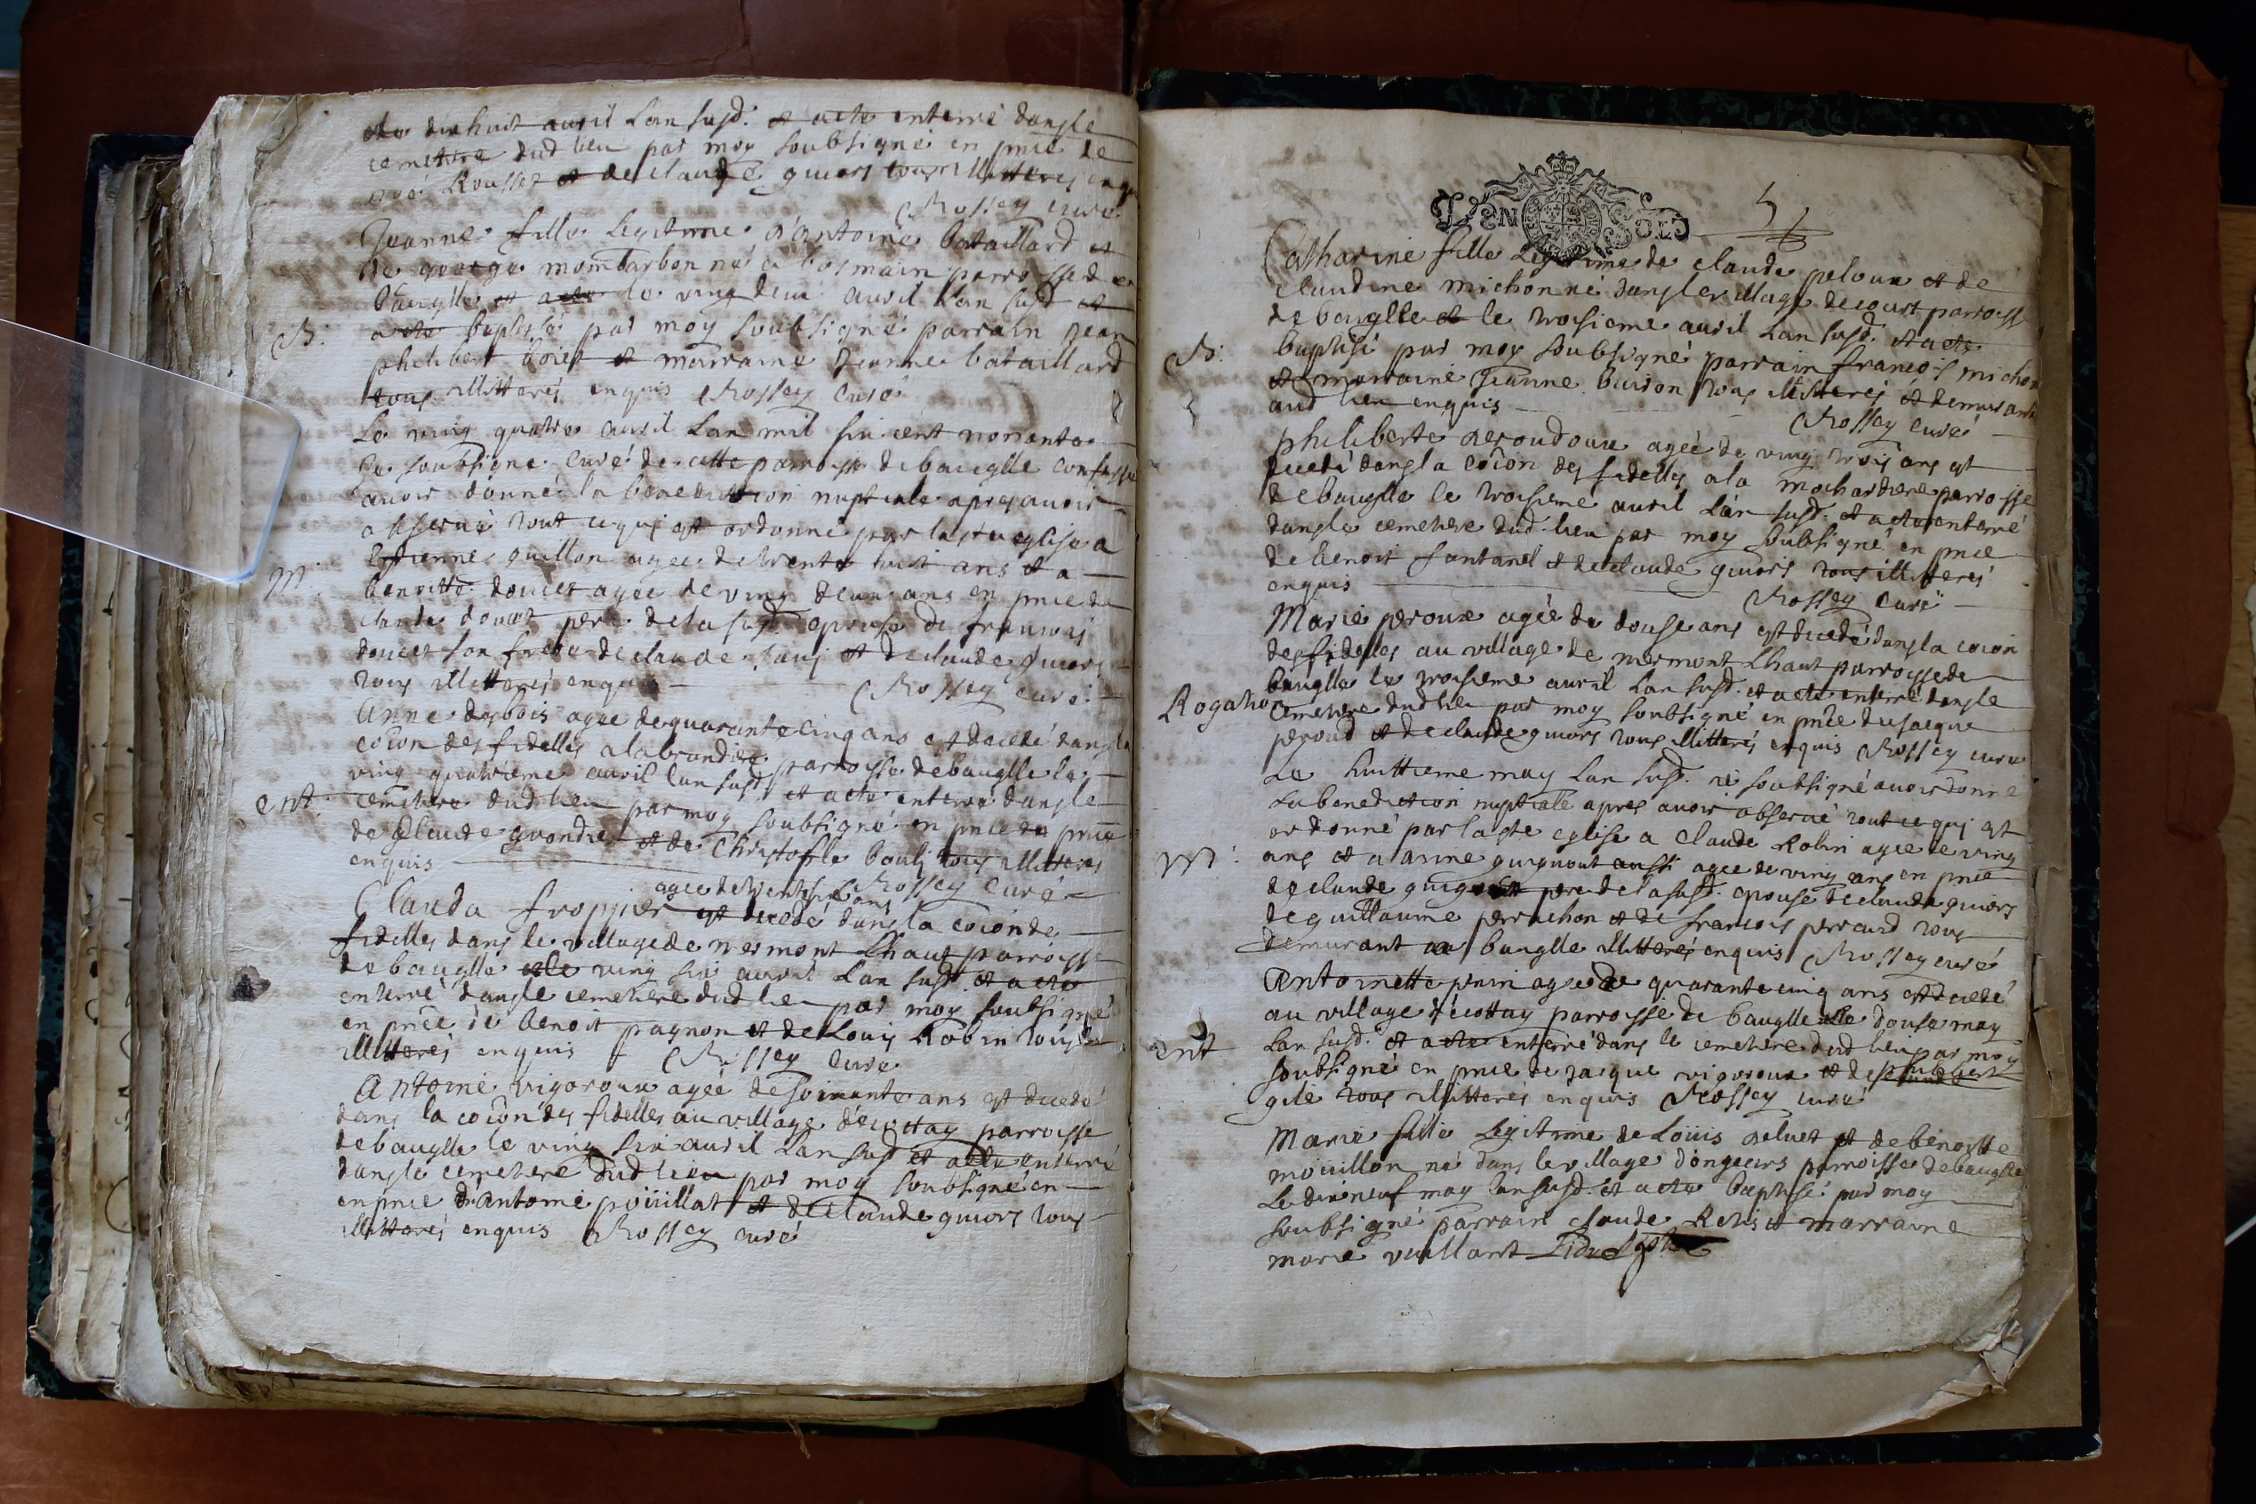 dixhuit auril Lan susd. et aeté enterré dansle
cemettere dud lieu par moy soubsigné en pnce de
Rousset et de claude guiors tous illitterés enquis
Rossey curé
Jeanne fille Legitime d'antoine bataillard et
de george montarbon né a bosmain parroisse de
bauglle et a le ving deux auril Lan susd et
B.
aeté baptisé par moy soubsigné parrain Jean
philibert et marraine Jeanne bataillard
tous illitterés enquis Rossey Curé
Le ving quatre auril Lan mil six cent nonante
Je soubsigné curé de cette parroisse de bauglle confesse
auoir donné la benediction nuptiale apres auoir
obserué tout ce qui est ordonné par la ste eglise a
Estienne guillon agee de trente huit ans et a
M.
benoitte doucet agee de ving deux ans en pnce de
claude doucet pere de la susd. epouse de francois
doucet son frere de claude et de claude guiors
tous illitterés enquis
Rossey curé
Anne desbois agee de quarante cinq ans est decedé dans la
coion des fidelles a labrandiere parroisse de bauglle le
ving quatrieme auril Lan susd et aeté enterré dansle
ent.
cemettere dud lieu par moy soubsigné en pnce
de Claude et de Christoffle tous illitterés
enquis
Rossey Curé
agee de trente six ans
Clauda froppier est decedé dans la coion de
fidelles dans le village de mesmont Lhaut parroisse
de bauglle le ving six auril Lan susd et aeté
enterré dansle cemettere dud lieu par moy soubsigné
en pnce de benoit pagnon et de Louis Robin tous
illitterés enquis Rossey Curé
Antoine vigoroux agee de soixante ans est decedé
dans la coion des fidelles au village d'écottay parroisse
de bauglle le ving six auril Lan susd et aeté enterré
dansle cemettere dud lieu par moy soubsigné en
en pnce d'Antoine poüillat et de claude guiors tous
illitterés enquis Rossey curé
VEN SOLS
Catharine fille Legitime de claude peloux et de
claudine michon né dansle village de court parroisse
de bauglle et le troisieme auril Lan susd. et aeté
B.
baptisé par moy soubsigné parrain francois michon
et marraine Jeanne buison tous illitterés et demurant
aud lieu enquis
Rossey curé
philiberte agée de ving trois ans est
decedé dansla coion des fidelles a la mochardiere parroisse
de bauglle le troisieme auril Lan susd. et aeté enterré
dansle cemettere dud. lieu par moy soubsigné en pnce
de benoit fontanel et de claude guiors tous illitterés
enquis
Rossey Curé
Marie peroux agée de douse ans est decedé dansla coion
des fidelles au village de mesmont Lhaut parroisse de
bauglle le troisieme auril Lan susd. et aeté enterré dansle
Rogaton
cemettere dud lieu par moy soubsigné en pnce de Jacque
peroud et de claude guiors tous illitterés enquis Rossey curé
Le huittieme may Lan susd. Je soubsigné auoir donné
la benediction nuptialle apres auoir obserué tout ce qui est
ordonné par laste eglise a claude Robin agee de ving
M.
ans et a anne guignout aussi agee de ving ans en pnce
de claude pere de la susd. epouse de claude guiors
de guillaume perrachon et de francois perrard tous
demurant a bauglle illitterés enquis Rossey curé
Antoinette pinin agee de quarante cinq ans est decedé
au village d'écottay parroisse de bauglle le douse may
ent
Lan susd. et aeté enterré dans le cemettere dud lieu par moy
soubsigné en pnce de Jacque vigoroux et de philibert
gile tous illitterés enquis Rossey curé
Marie fille Legitime de Loüis et de benoitte
moüillon né dans le village d'ongeurs parroisse de bauglle
Le dixneuf may Lan susd. et aeté baptisé par moy
soubsigné parrain claude et marraine
marie vaillant